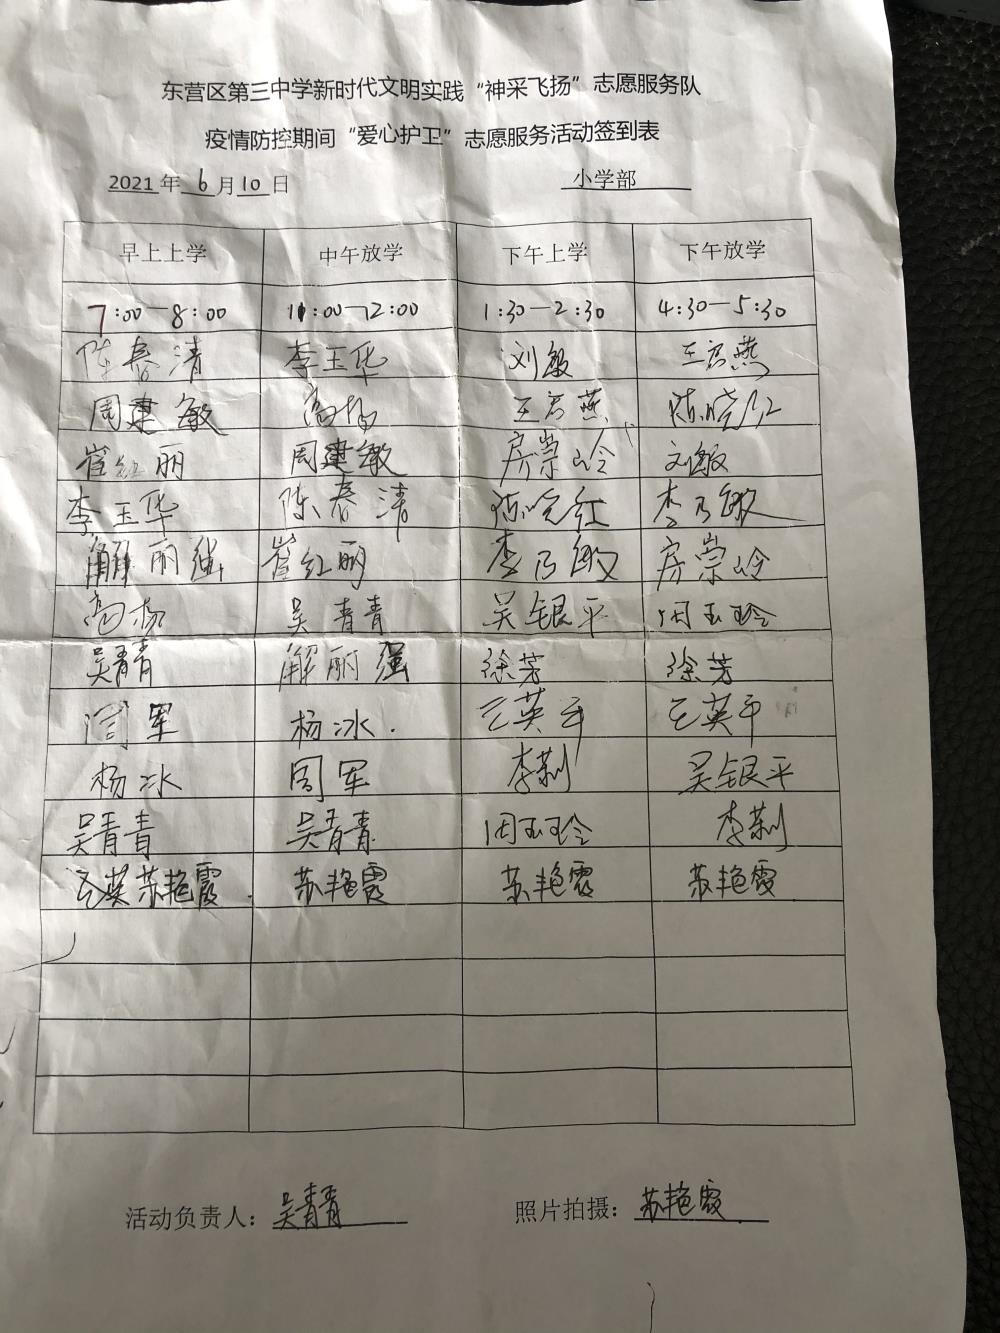 东营区第三中学新时代文明实践“神采飞扬”志愿服务队
疫情防控期间“爱心护卫”志愿服务活动签到表
2021年 6月10日 小学部
早上上学 中午放学 下午上学 下午放学
7:00—8:00 11:00—12:00 1:30—2:30 4:30—5:30
陈春清 李玉华 刘敏 王君燕
周建敏 高杨 王君燕 陈晓红
崔红丽 周建敏 房崇岭 刘敏
李玉华 陈春清 陈晓红 李乃敏
解丽强 崔红丽 李乃敏 房崇岭
高杨 吴青青 吴银平 田玉玲
吴青青 解丽强 徐芳 徐芳
周军 杨冰 王英平 王英平
杨冰 周军 李莉 吴银平
吴青青 吴青青 田玉玲 李莉
苏艳霞 苏艳霞 苏艳霞 苏艳霞
活动负责人：吴青青 照片拍摄：苏艳霞